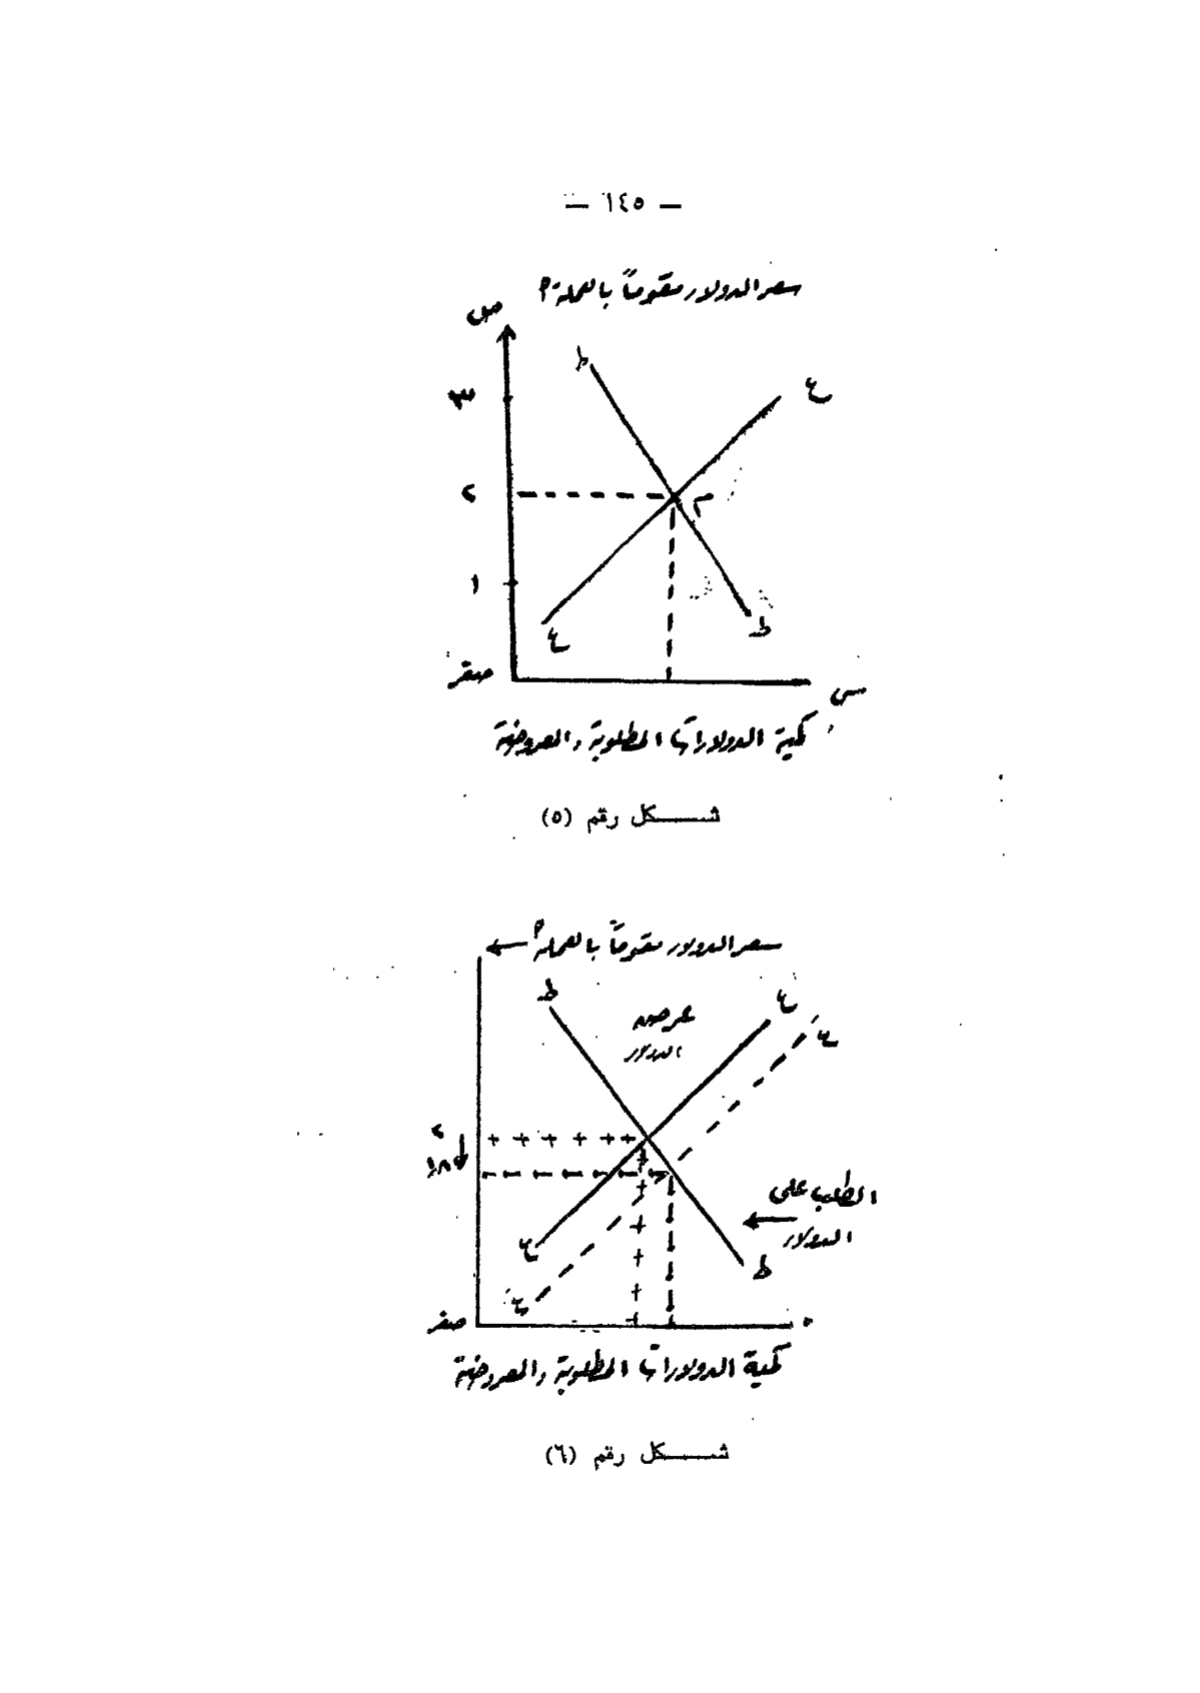 — ١٤٥ —
سعر الدولار مقوماً بالعملة م
ص
ط
ع
٣
٢
م
١
ع
ط
صفر
س
كمية الدولارات المطلوبة والمعروضة
شكل رقم (٥)
سعر الدولار مقوماً بالعملة م
ط
ع
عرض
الدولار
ع
٢
الطلب على
الدولار
ع
ط
ع
صفر
كمية الدولارات المطلوبة والمعروضة
شكل رقم (٦)